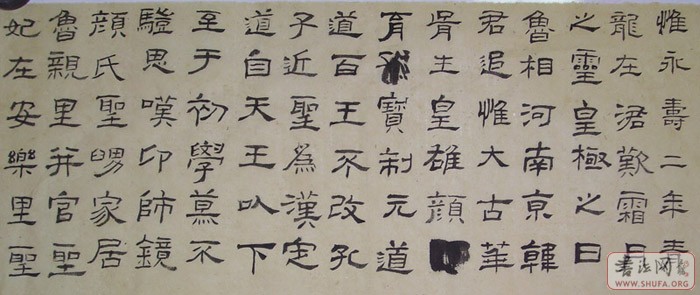 惟永壽二年青
龍在涒歎霜月
之靈皇極之日
魯相河南京韓
君追惟大古華
胥生皇雄顏
育寶制元道
道百王不改孔
子近聖爲漢定
道自天王以下
至于初學莫不
驥思嘆卬師鏡
顏氏聖舅家居
魯親里并官聖
妃在安樂里聖
書法网
WWW.SHUFA.ORG